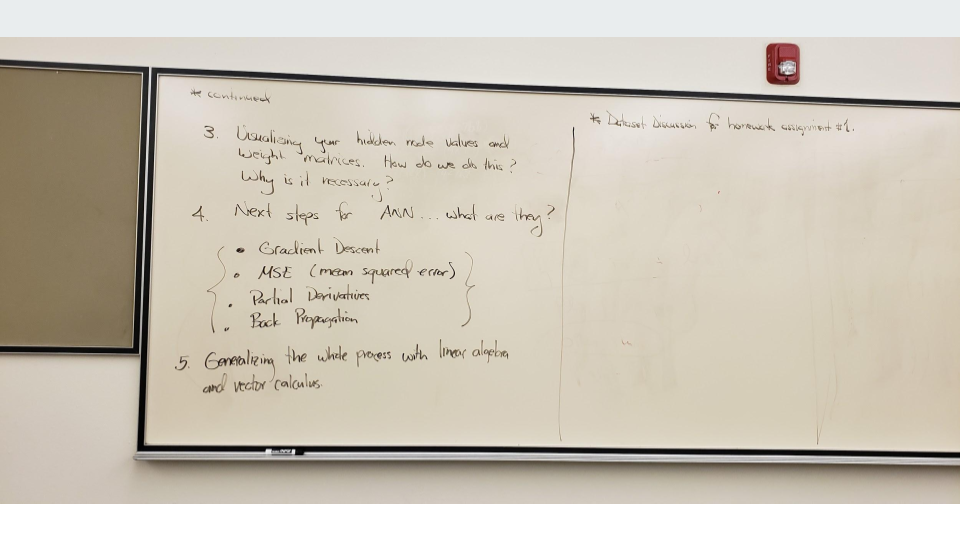 * continued
3. Visualizing your hidden node values and
weight matrices. How do we do this?
Why is it necessary?
4. Next steps for ANN... what are they?
• Gradient Descent
• MSE (mean squared error)
• Partial Derivatives
• Back Propagation
5. Generalizing the whole process with linear algebra
and vector calculus.
* Dataset Discussion for homework assignment #1.